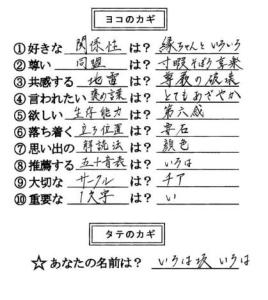 ヨコのカギ
①好きな 関係性 は? 縁ちゃんと いろいろ
②尊い 同盟 は? 寸暇そぼろ享楽
③共感する 地雷 は? 尊厳の破壊
④言われたい 褒め言葉 は? とてもあざやか
⑤欲しい 生存能力 は? 第六感
⑥落ち着く 立ち位置 は? 要石
⑦思い出の 解読法 は? 顔色
⑧推薦する 五十音表 は? いろは
⑨大切な サークル は? チア
⑩重要な 1文字 は? い
タテのカギ
☆ あなたの名前は? いろは坂 いろは